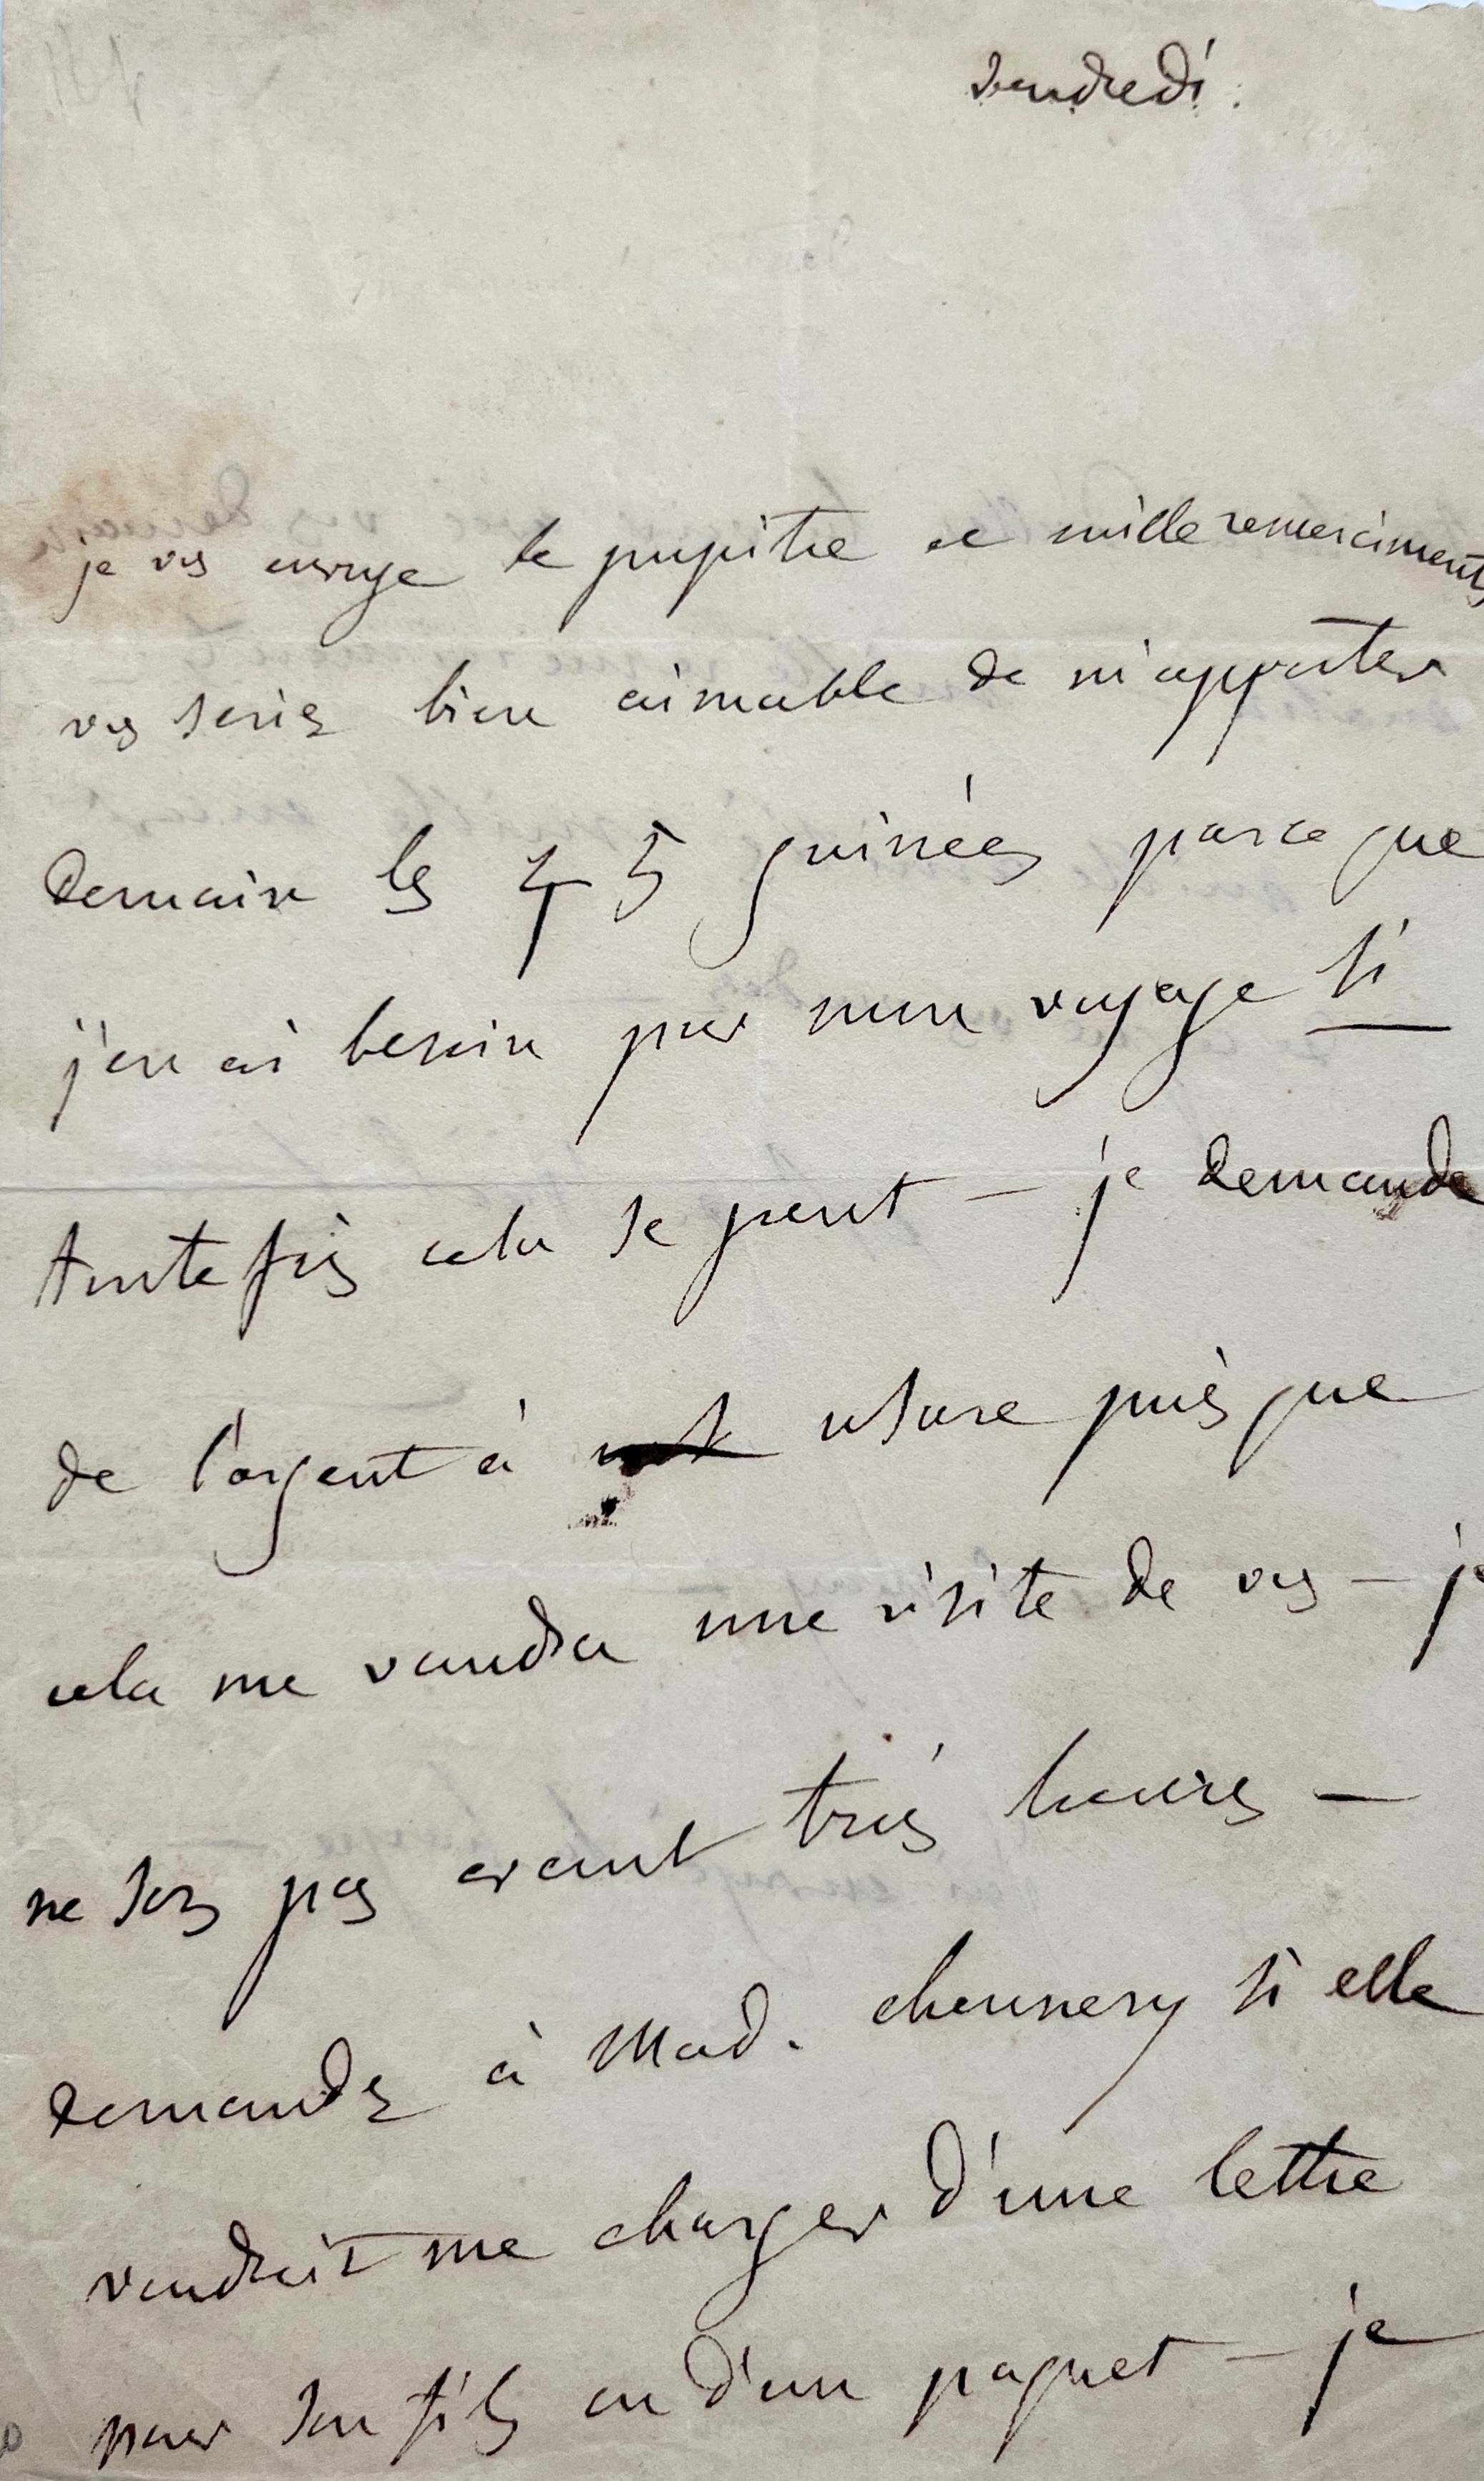 vendredi.
je vs envoye le pupitre et mille remerciments
vs seriez bien aimable de m'apporter
demain les 45 guinées parce que
j'en ai besoin pour mon voyage si
toutefois cela se peut — je demande
de l'argent à usure puisque
cela me vaudra une visite de vs — je
ne sors pas avant trois heures —
demandez à Mad. chennery si elle
voudroit me charger d'une lettre
pour son fils ou d'un paquet — je